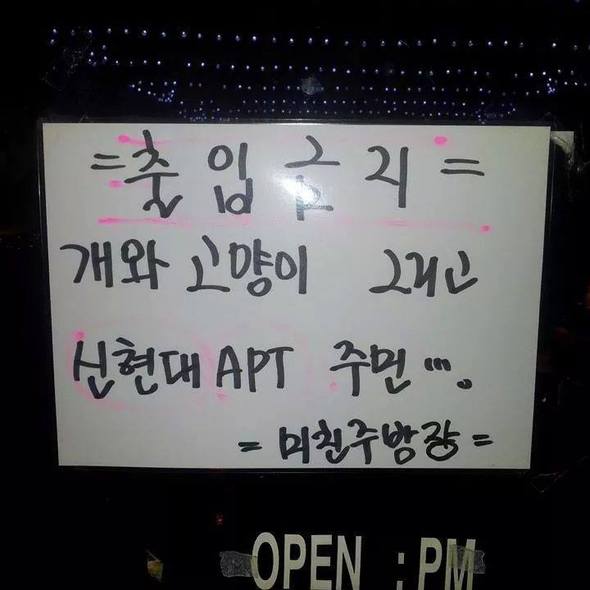 =출입금지=
개와 고양이 그리고
신현대APT 주민....
=미친주방장=
OPEN : PM